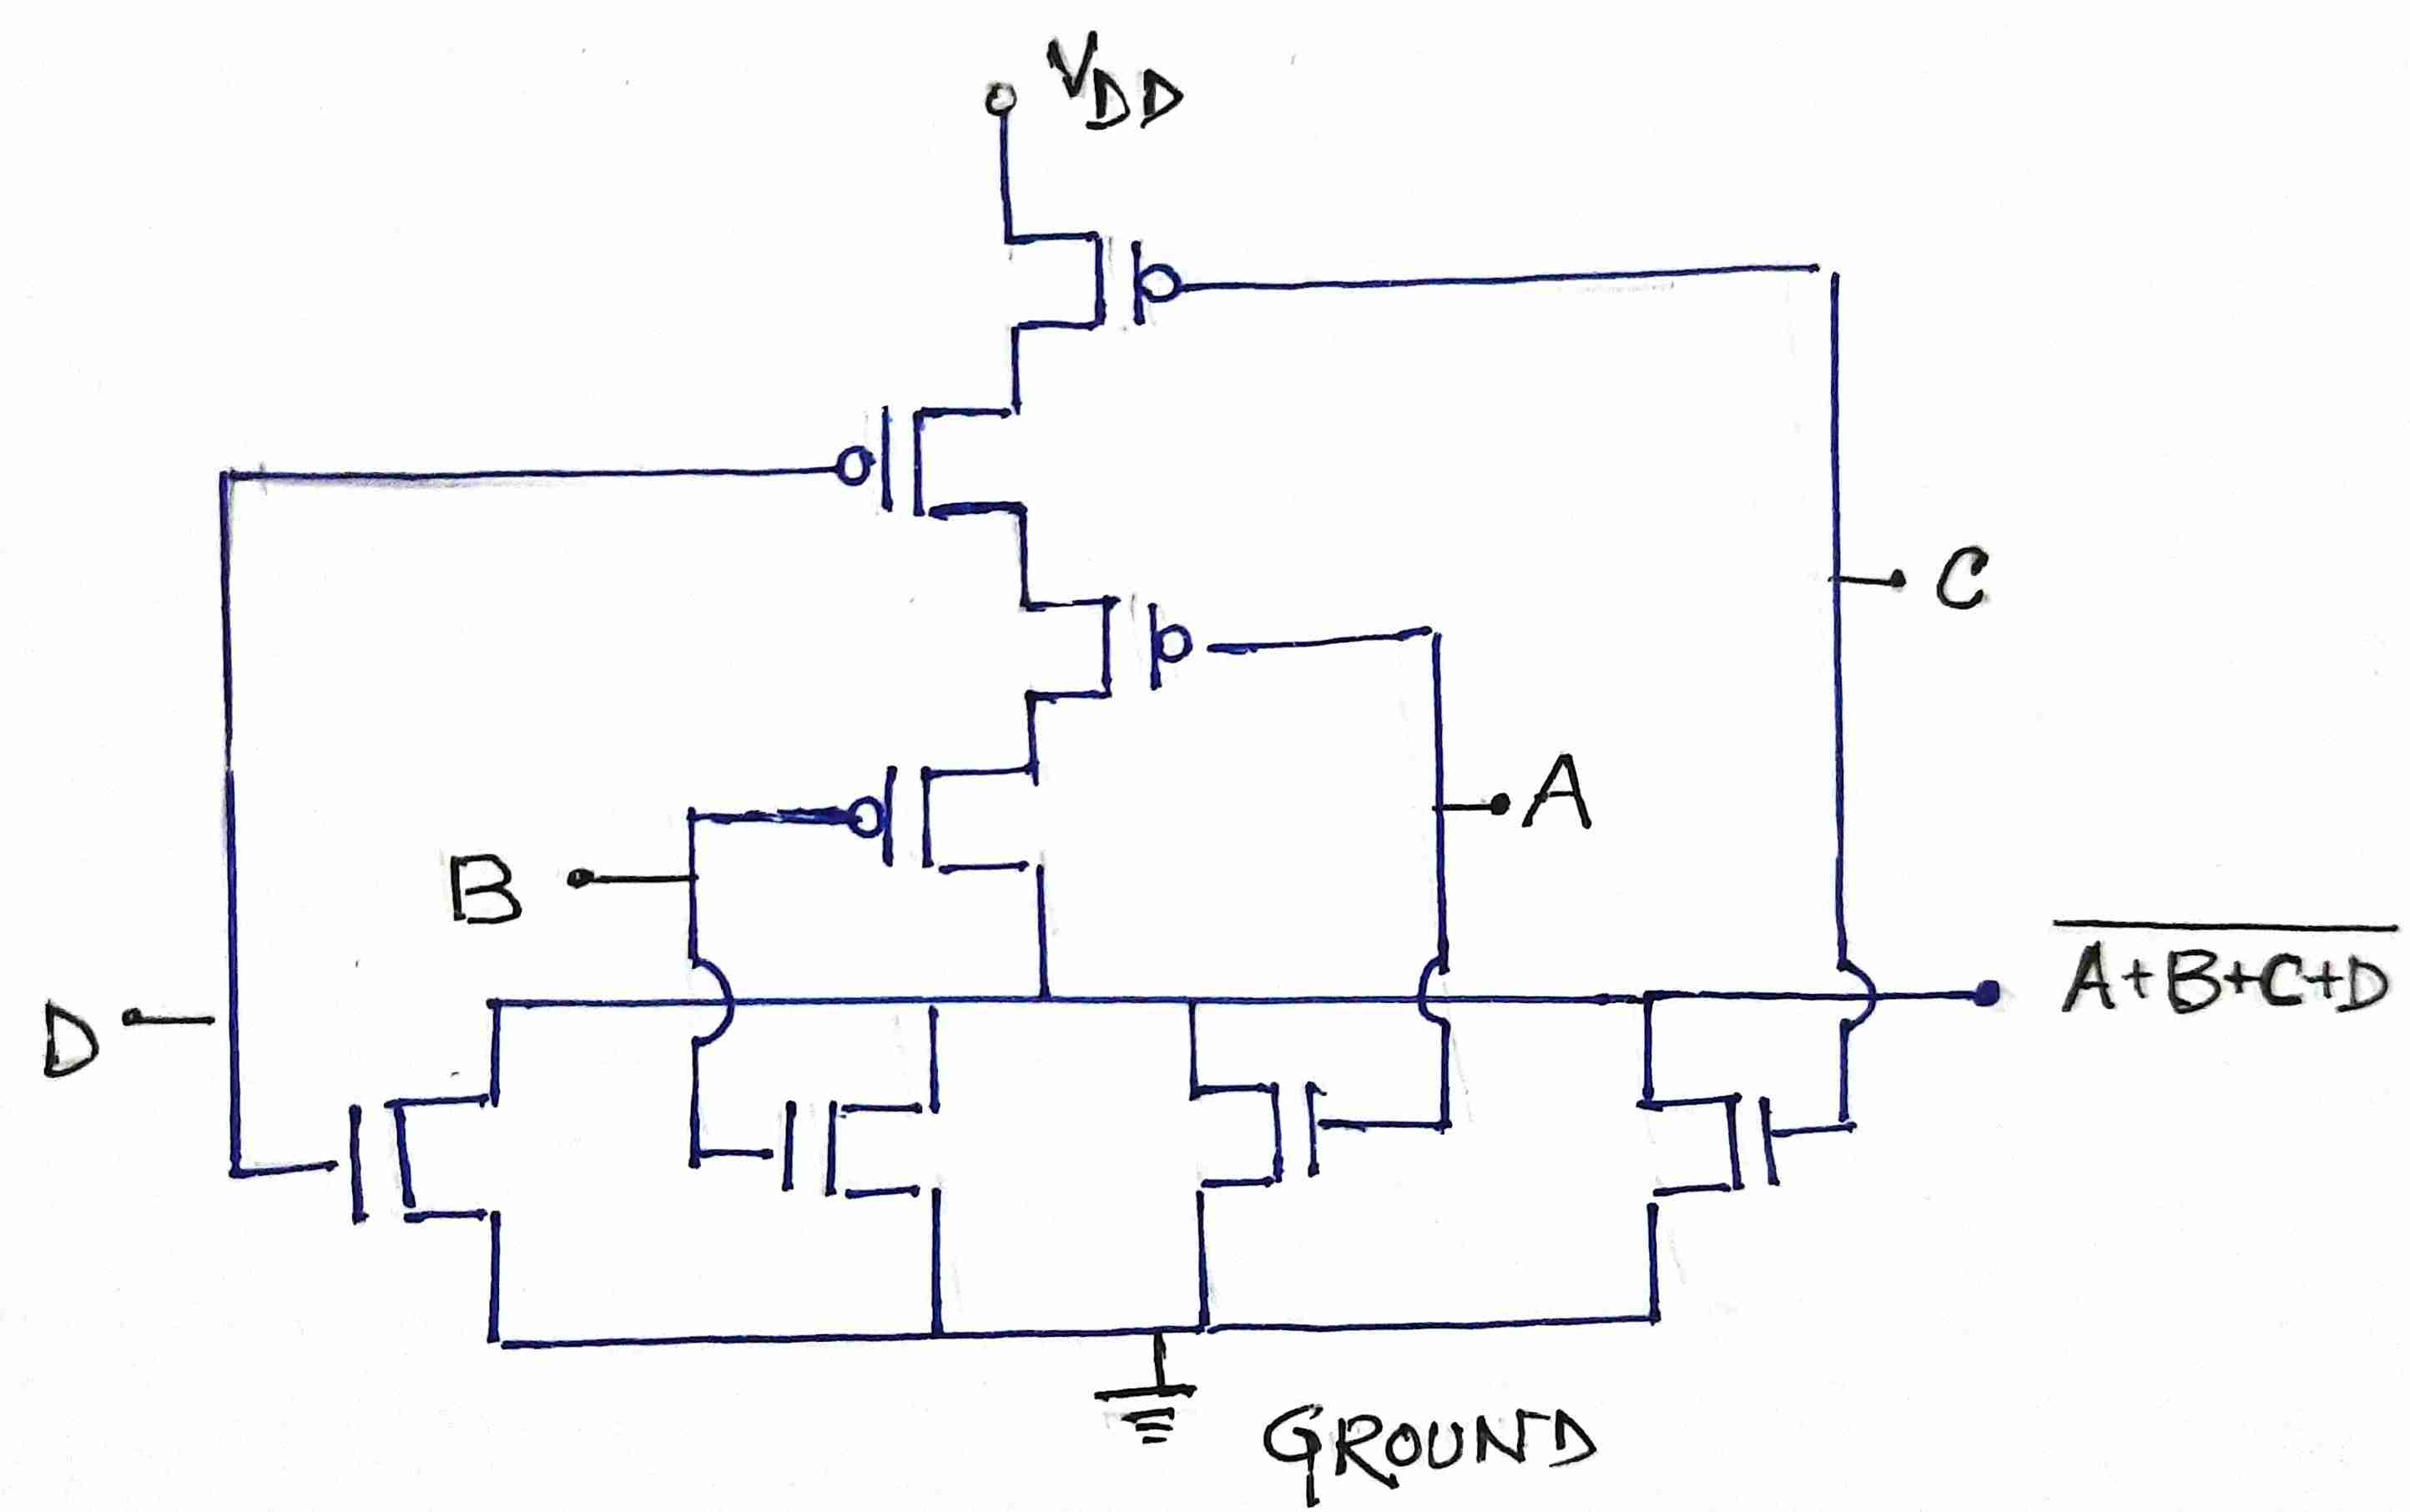 V_DD
C
A
B
\overline{A+B+C+D}
D
GROUND